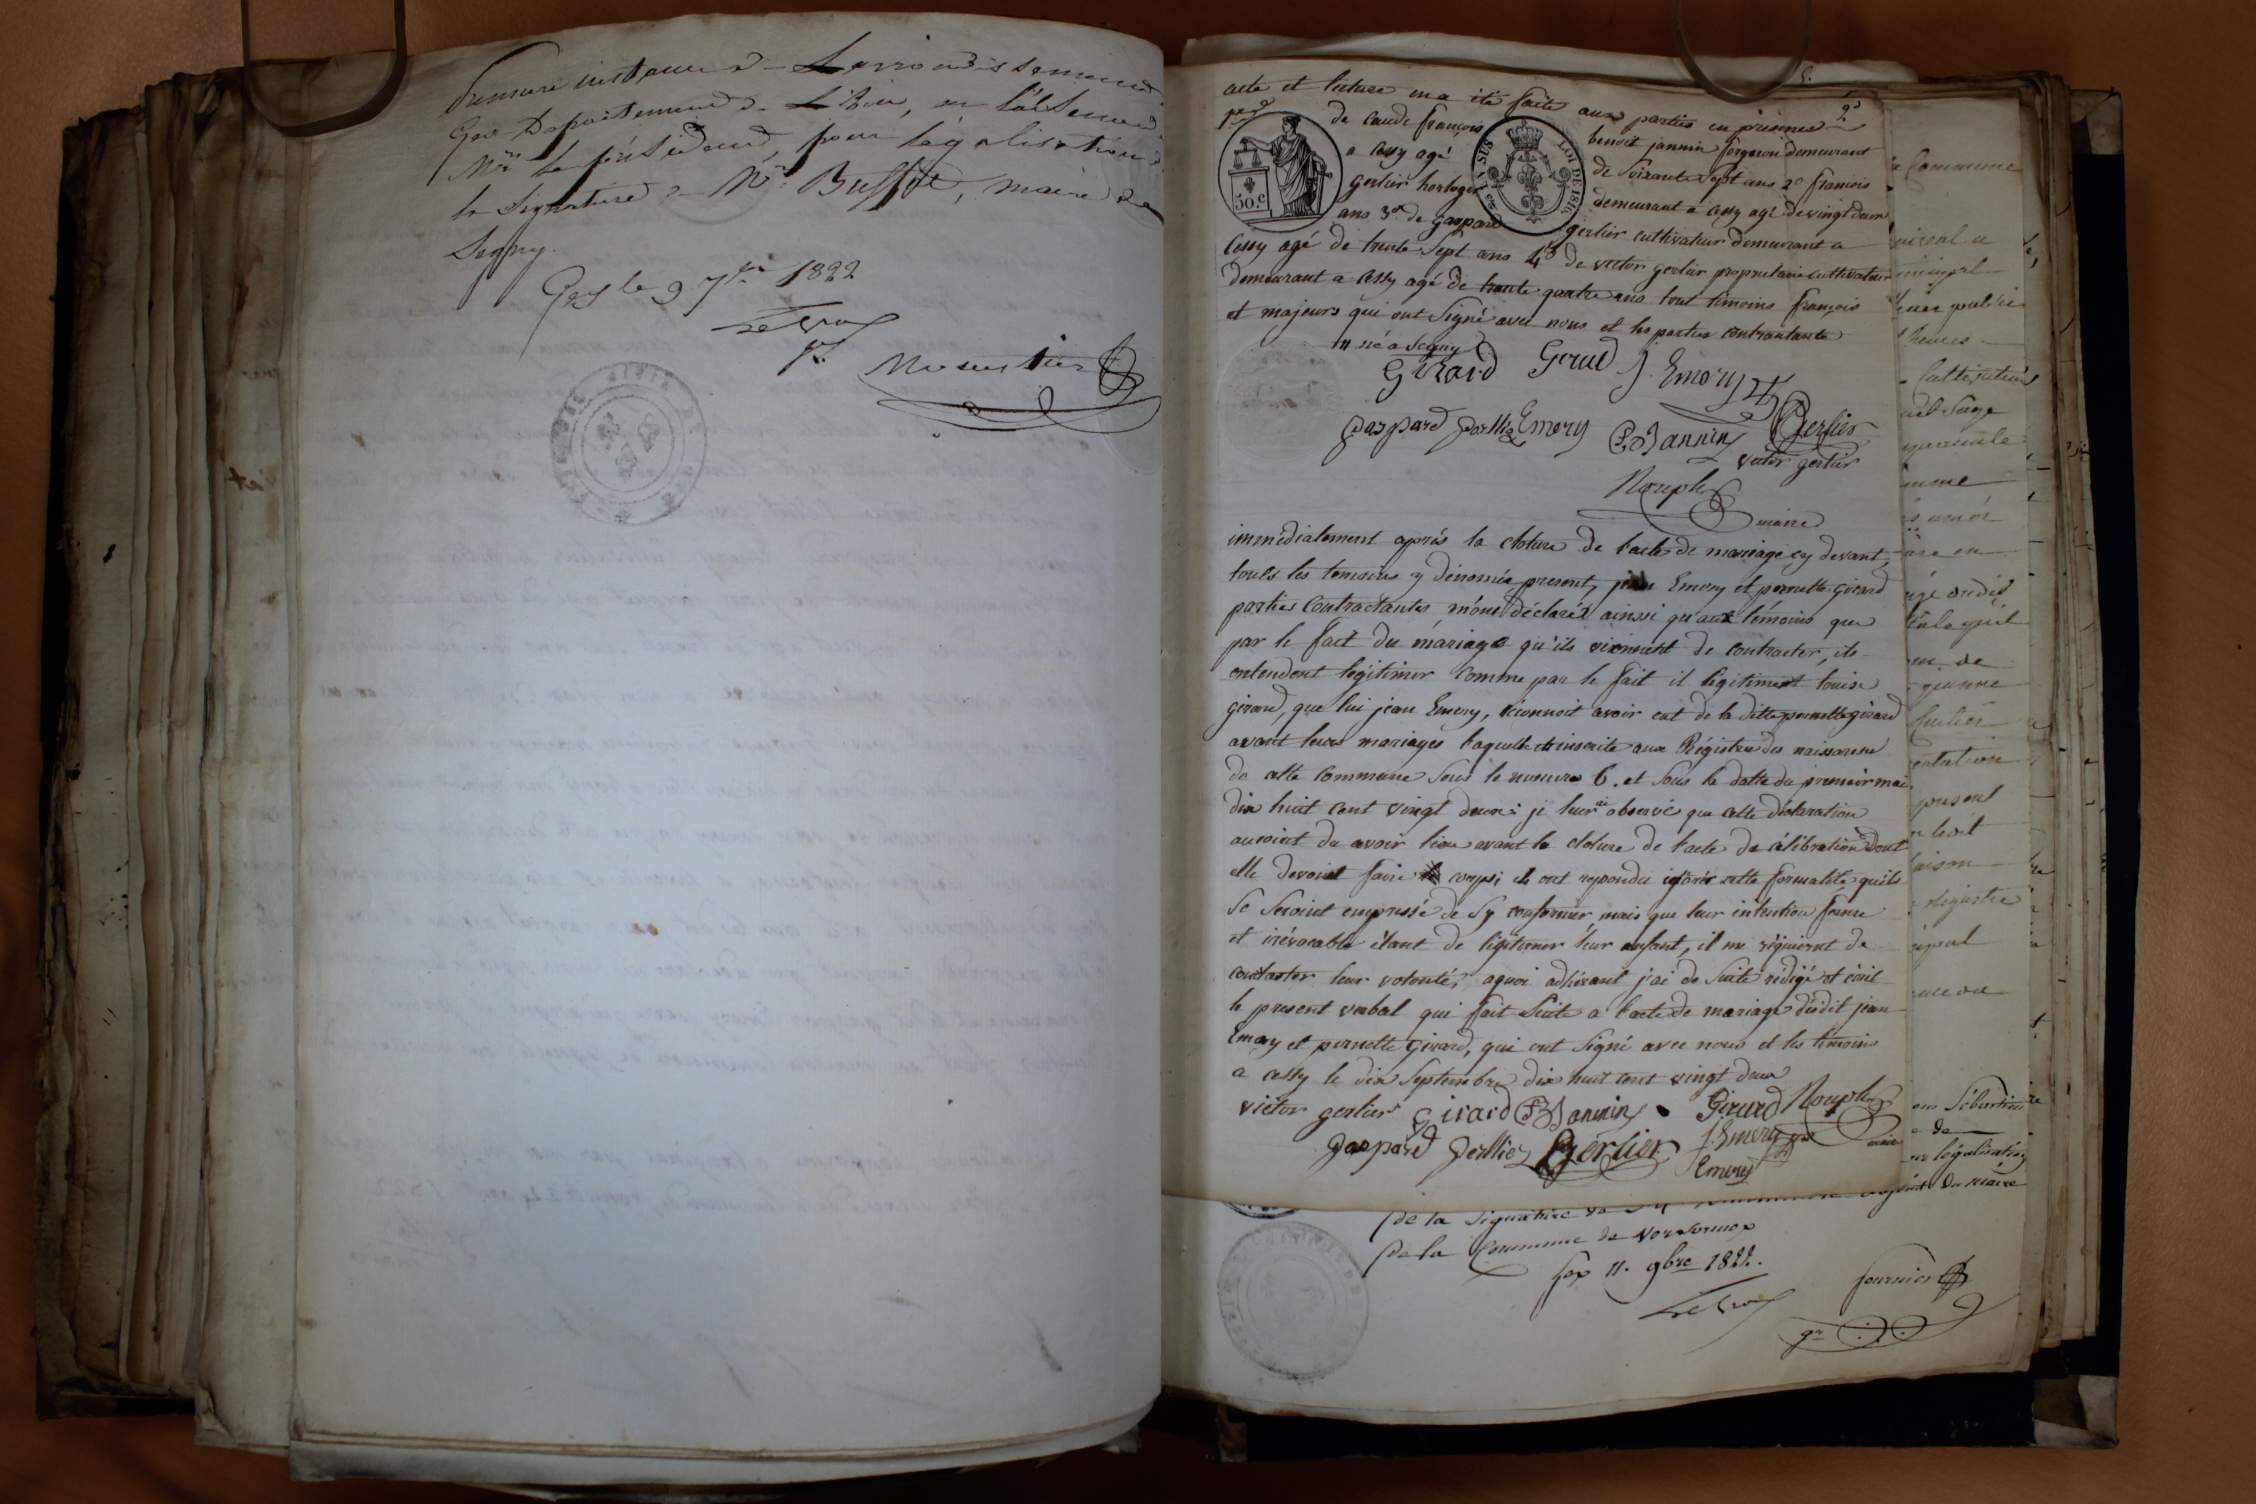 Première instance de L'arrondissement de
Gex Département de L'Ain, en l'absence de
Mr. le président, pour légalisation de
la Signature de Mr. Buffet, maire de
Segny.
Gex le 9 7bre 1822
acte et lecture en a été faite aux parties en présence
de Caude françois benoit jannin forgeron demeurant
a Cessy agé de Soixante Sept ans 2o françois
gerlier horloger demeurant a Cessy agé de vingt deux
ans 3o de gaspard gerlier cultivateur demeurant a
Cessy agé de trente Sept ans 4o de victor gerlier proprietaire cultivateur
demeurant a Cessy agé de trente quatre ans tout témoins françois
et majeurs qui ont Signé avec nous et les parties contractantes
né a Segny
50.c
SUS
LOI DE 1816
Girard Girard J. Emery
gaspard gerllier Emery Cf Jannin Gerlier
victor gerlier
Rouph
maire
immédiatement après la cloture de l'acte de mariage cy devant,
touts les temoins y dénomés present, jean Emery et pernette girard
parties Contractantes m'ont déclarés ainssi qu'aux témoins que
par le fait du mariage qu'ils viennent de contracter, ils
entendent légitimer comme par le fait il légitiment louise
girard, que lui jean Emery, reconnoit avoir eut de la ditte pernette girard
avant leurs mariages laquelle est inscrite aux Régistres des naissances
de cette Commune Sous le numero 6. et Sous la datte du premier mai
dix huit cent vingt deux: je leur ai observé que cette déclaration
auroint du avoir lieu avant la cloture de l'acte de célébration dont
elle devoint faire corps; ils ont repondu ignorér cette formalité, qu'ils
Se Seroint empressé de S'y conformer mais que leur intention ferme
et irévocable étant de légitimer leur enfant, il me réquierent de
constater leur volonté, aquoi adhérant j'ai de Suite rédigé et écrit
le present verbal qui fait Suite a l'acte de mariage dudit jean
Emery et pernette girard, qui ont Signé avec nous et les témoins
a cessy le dix Septembre dix huit cent vingt deux
victor gerlier Girard Cf Jannin Girard Rouph
gaspard gerllier Gerlier J. Emery maire
Emery
Commune
heures
ou Sébastien
légalisation
de la Signature de adjoint du maire
de la Commune de Versonnex
Gex 11. 9bre 1822.
fournier